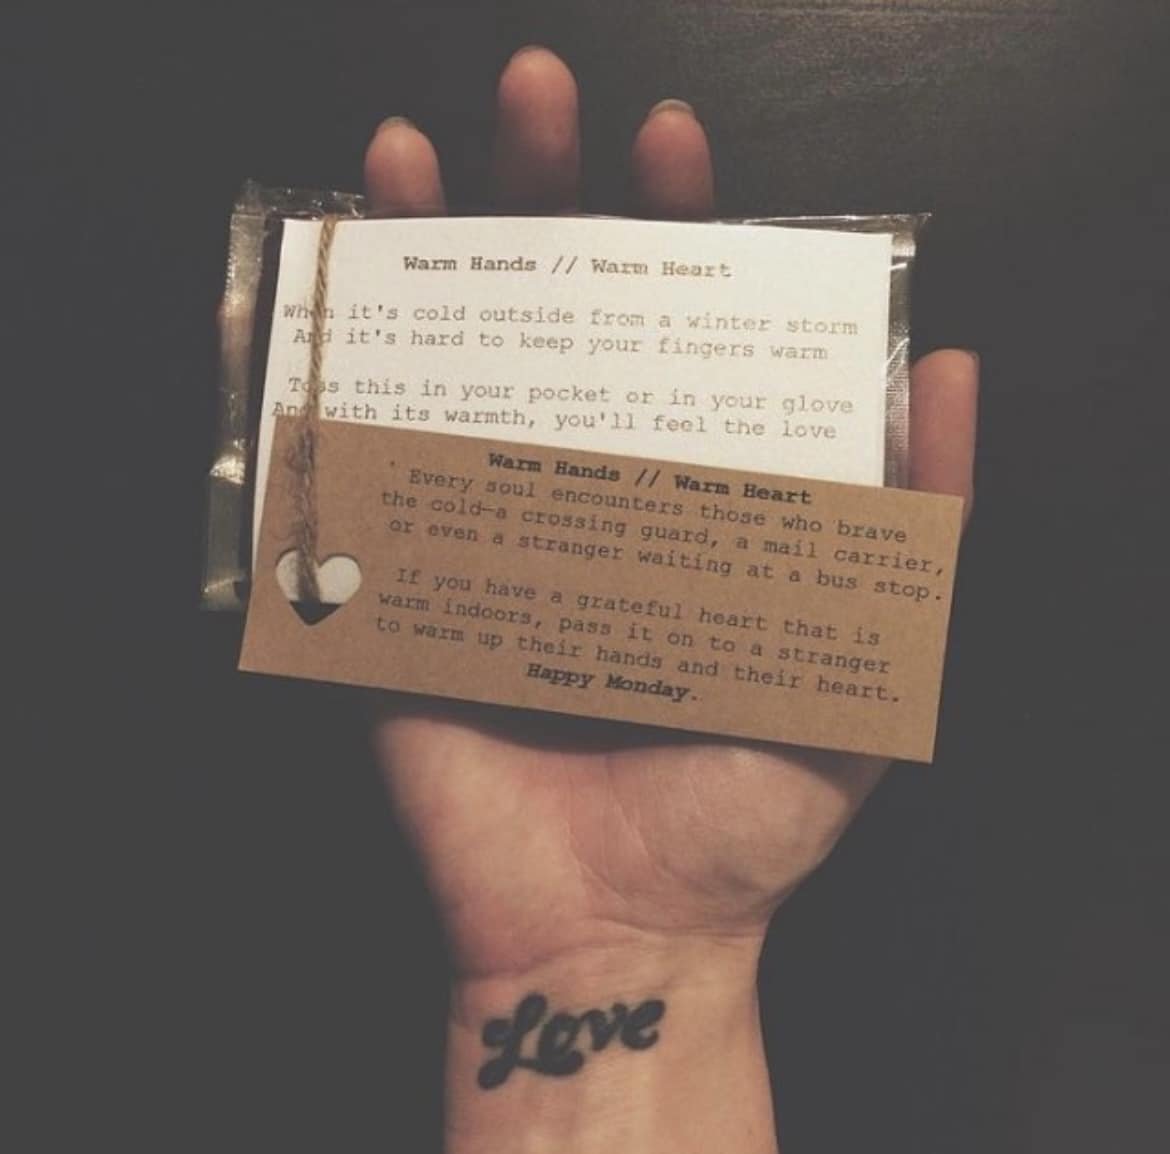 Warm Hands // Warm Heart
When it's cold outside from a winter storm
And it's hard to keep your fingers warm
Toss this in your pocket or in your glove
And with its warmth, you'll feel the love
Warm Hands // Warm Heart
Every soul encounters those who brave
the cold—a crossing guard, a mail carrier,
or even a stranger waiting at a bus stop.
If you have a grateful heart that is
warm indoors, pass it on to a stranger
to warm up their hands and their heart.
Happy Monday.
Love